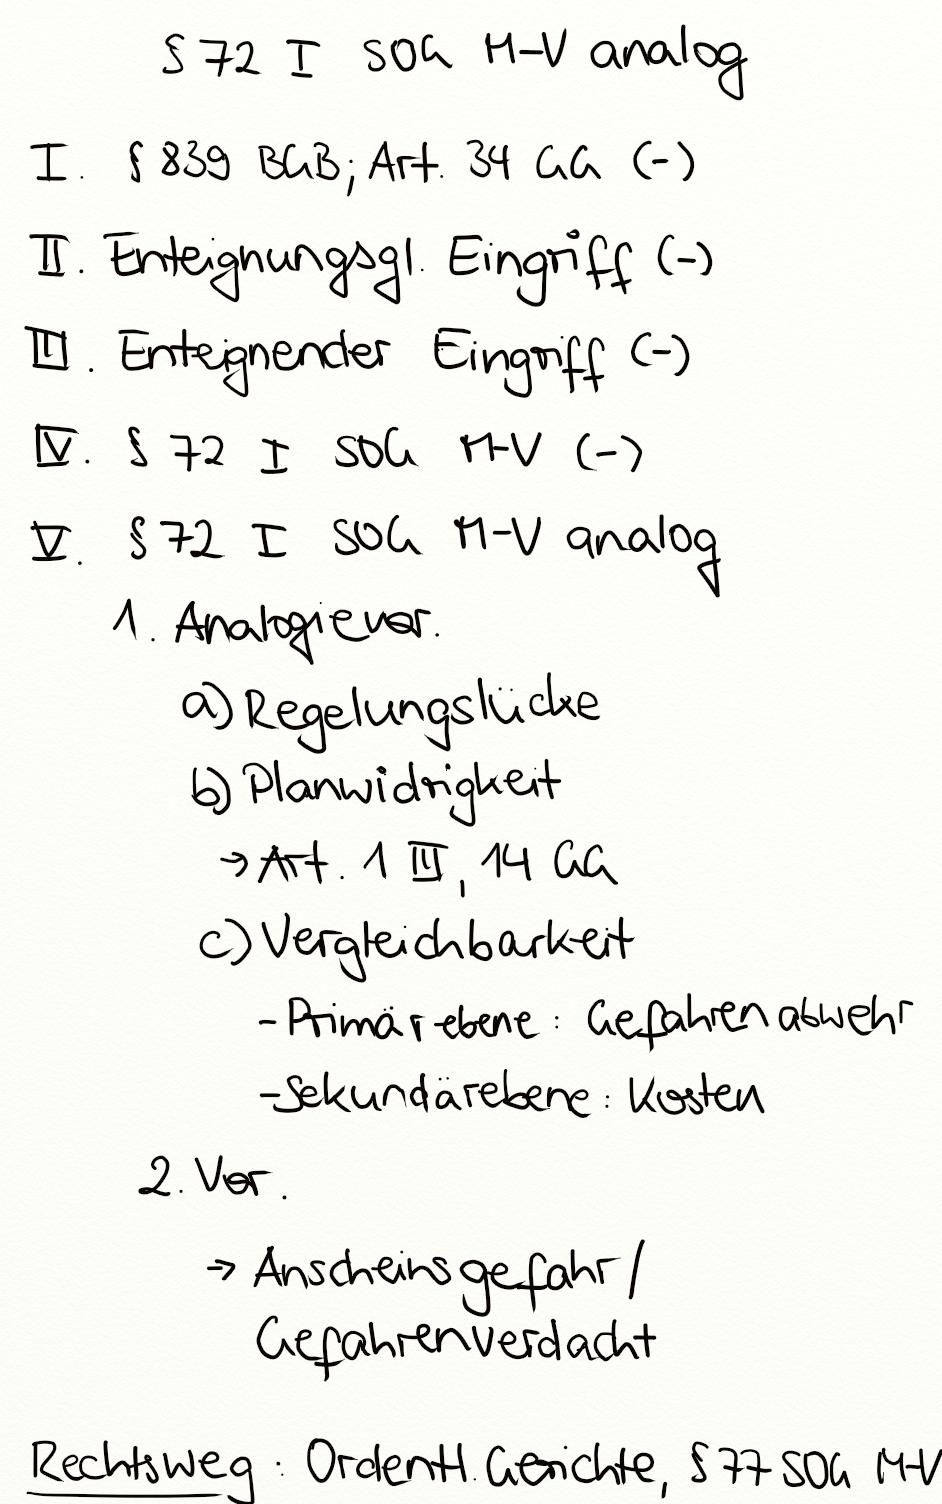 § 72 I SOG M-V analog
I. § 839 BGB; Art. 34 GG (-)
II. Enteignungsgl. Eingriff (-)
III. Enteignender Eingriff (-)
IV. § 72 I SOG M-V (-)
V. § 72 I SOG M-V analog
1. Analogievor.
a) Regelungslücke
b) Planwidrigkeit
→ Art. 1 III, 14 GG
c) Vergleichbarkeit
- Primärebene: Gefahrenabwehr
- Sekundärebene: Kosten
2. Vor.
→ Anscheinsgefahr/
Gefahrenverdacht
Rechtsweg: Ordentl. Gerichte, § 77 SOG M-V